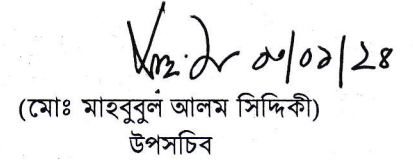 ০৩/০১/২৪
(মোঃ মাহবুবুল আলম সিদ্দিকী)
উপসচিব